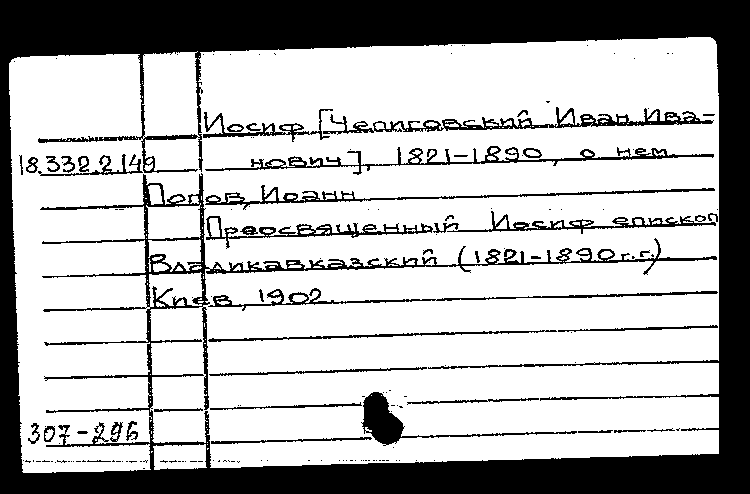 Иосиф [Чепиговский Иван Ива-
18.332.2.149 нович], 1821-1890, о нем.
Попов, Иоанн
Преосвященный Иосиф епископ
Владикавказский (1821-1890г.г.)
Киев, 1902.
307-296